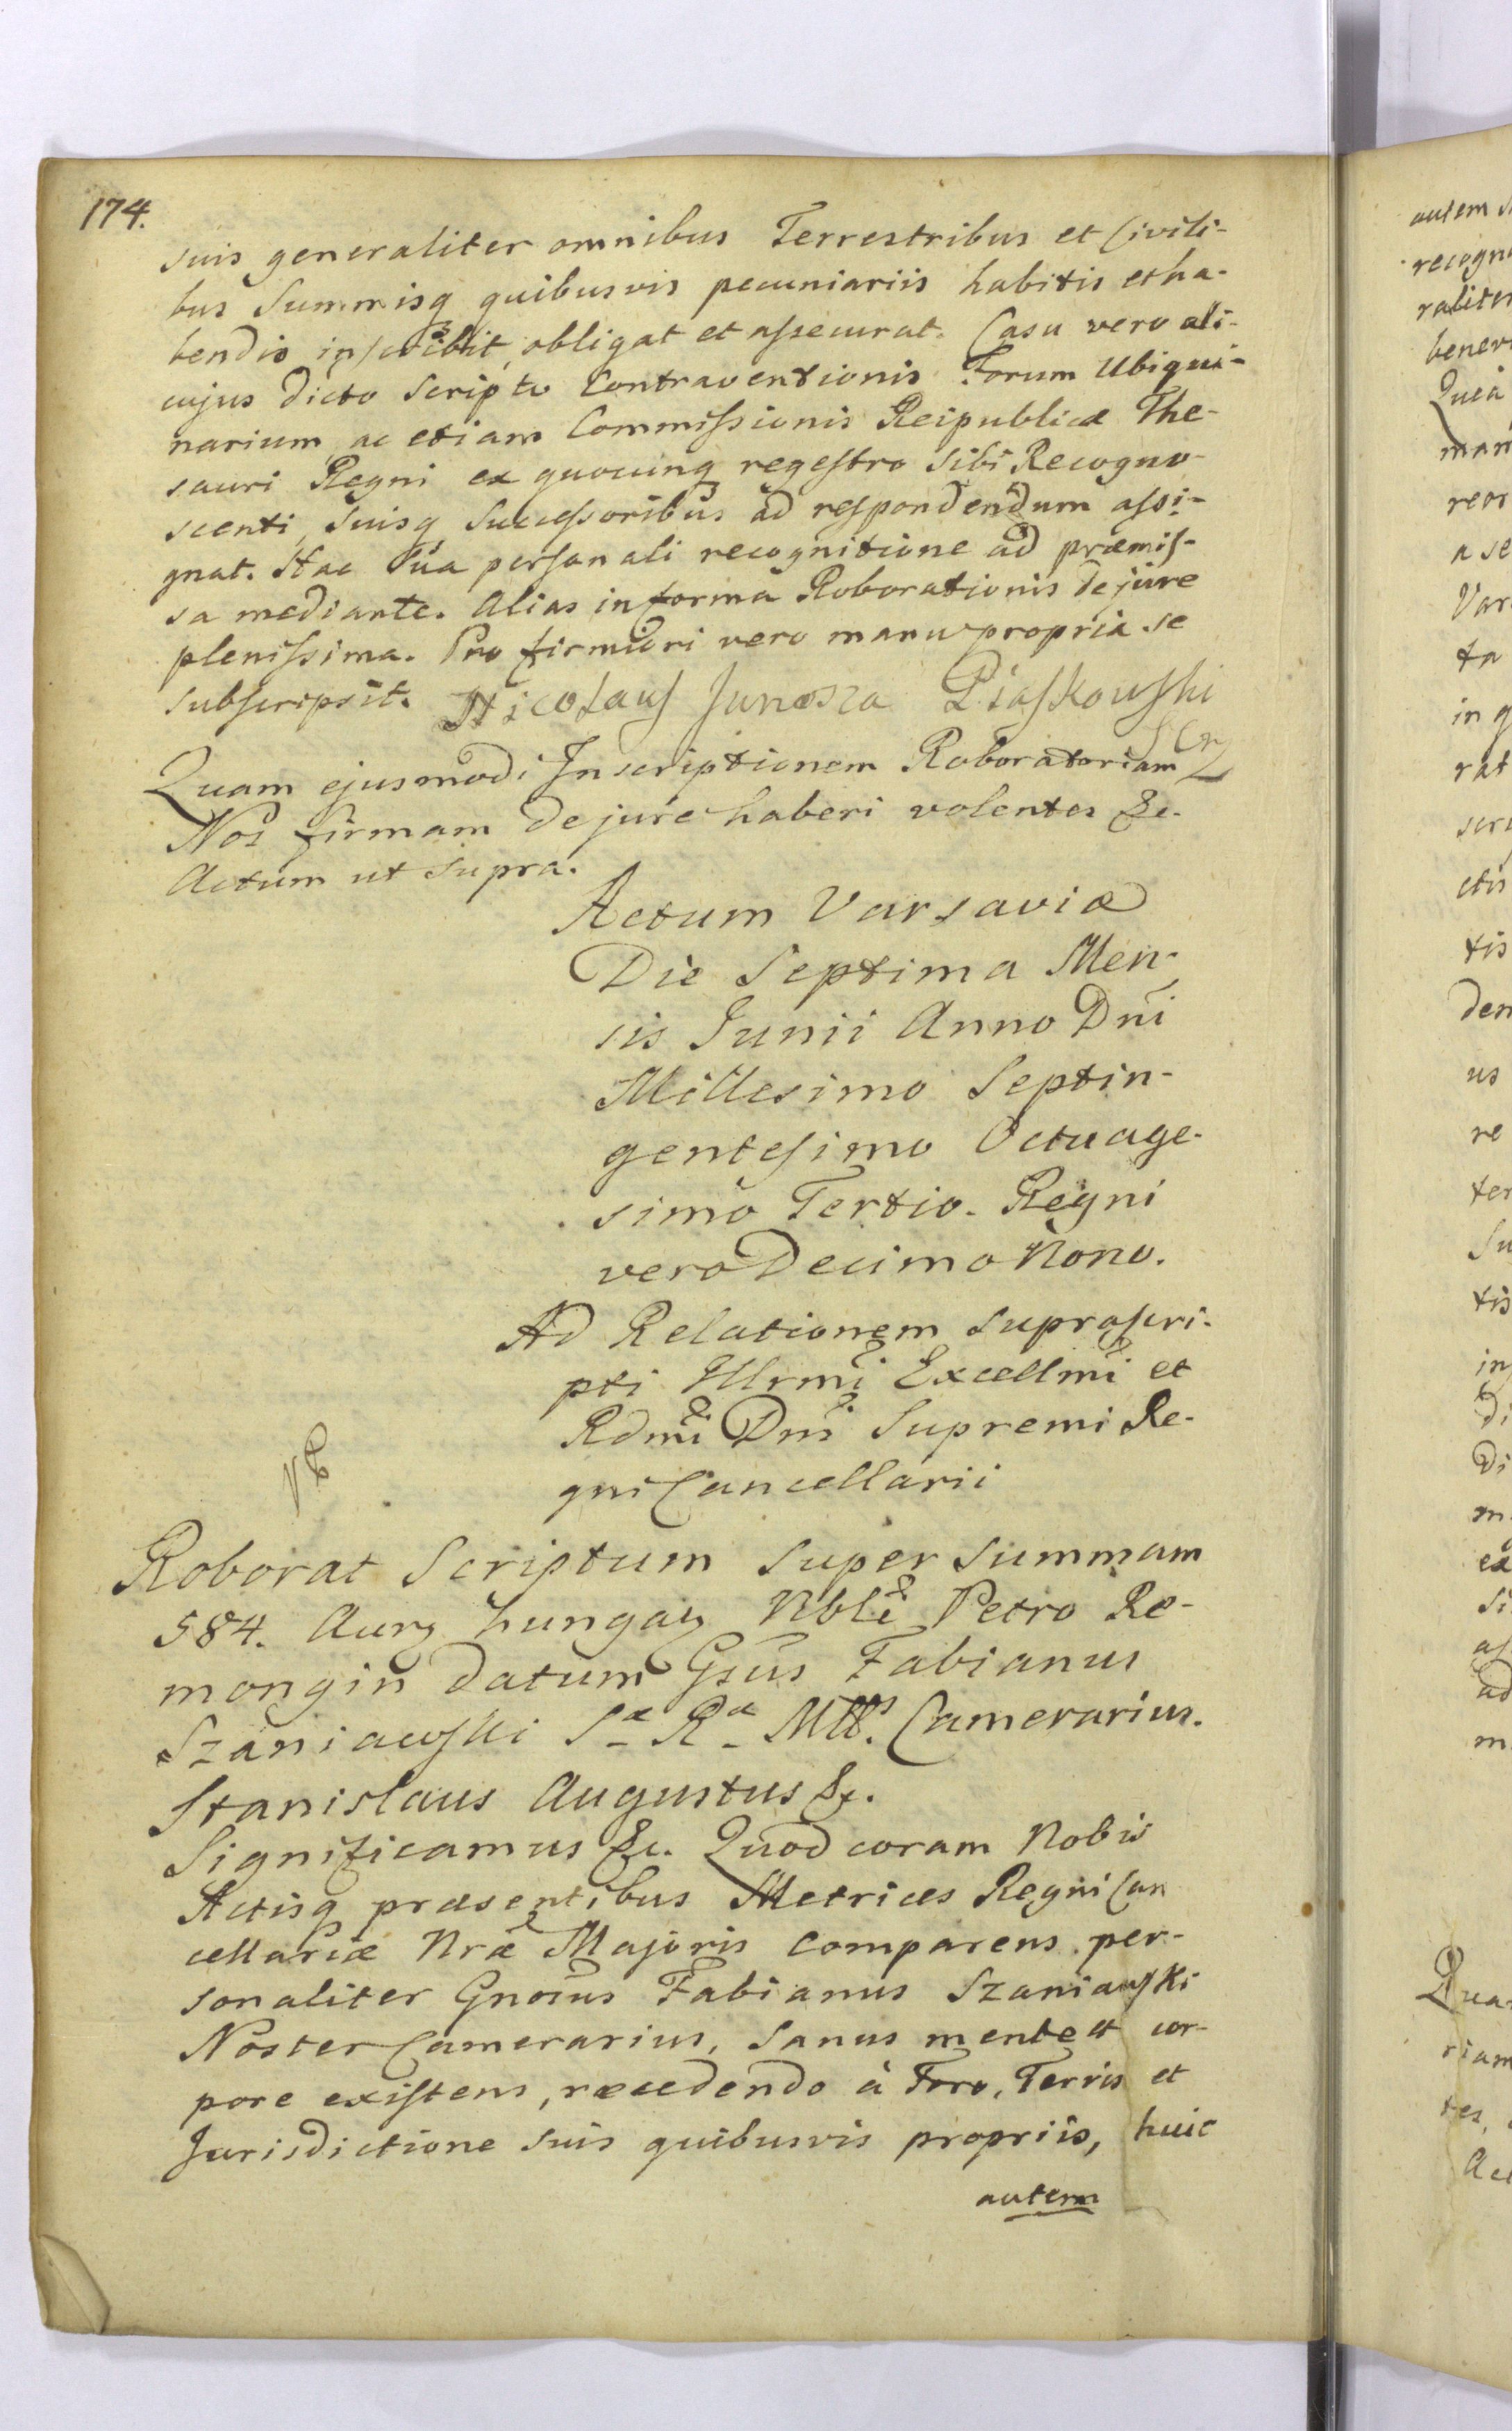 174.
suis generaliter omnibus Terrestribus et Civili-
bus Summisq quibusvis pecuniariis habitis et ha-
bendis inscribit, obligat et assecurat. Casu vero ali-
cujus dicto Scripto Contraventionis Forum Ubiqui-
narium, ac etiam Commissionis Reipublicæ The-
sauri Regni ex quocunq regestro Sibi Recogno-
scenti, Suisq Successoribus ad respondendum assi-
gnat. Hac Sua personali recognitione ad præmis-
sa mediante. Alias in forma Roborationis de jure
plenissima. Pro firmiori vero manu propria se
subscripsit. Nicolaus Junosza Piaskowski
Quam ejusmodi Inscriptionem Roboratoriam
Nos firmam de jure haberi volentes &c.
Actum ut supra.
Actum Varsaviæ
Die Septima Men-
sis Junii Anno Dni
Millesimo Septin-
gentesimo Octuage-
simo Tertio. Regni
vero Decimo Nono.
Ad Relationem suprascri-
pti Illrmi Excellmi et
Rdmi Dni Supremi Re-
gni Cancellarii
Roborat Scriptum super summam
584. Aurz hungaz Nbli Petro Re-
mongin datum Gsus Fabianus
Szaniawski Sæ Ræ Mttis Camerarius.
Stanislaus Augustus &c.
Significamus &c. Quod coram Nobis
Actisq præsentibus Metrices Regni Can
cellariæ Nræ Majoris comparens per-
sonaliter Gnosus Fabianus Szaniawski
Noster Camerarius, Sanus mente et cor-
pore existens, recedendo à Foro, Terris et
Jurisdictione suis quibusvis propriis, huic
autem